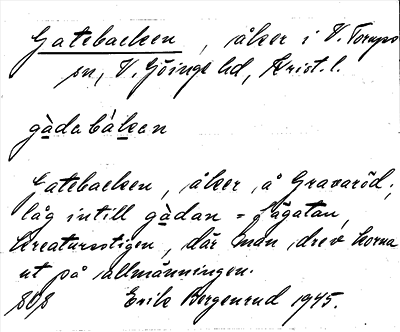 Gatebacken, åker i V. Torups
sn, V. Göinge hd, Krist. l.
gàdabàken
Gatebacken, åker å Gravaröd;
låg intill gàdan = fägatan,
kreatursstigen, där man drev korna
ut på allmänningen.
Erik Bergenrud 1945.